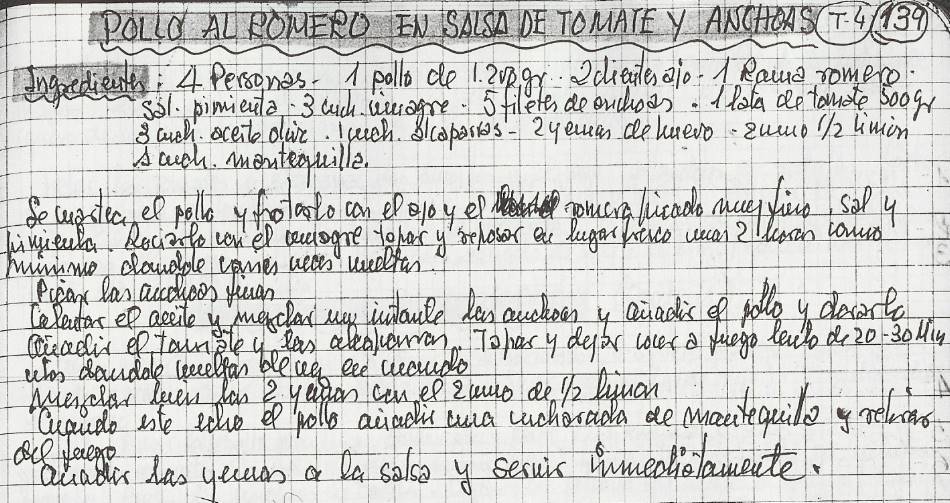 POLLO AL ROMERO EN SALSA DE TOMATE Y ANCHOAS T-4/139
Ingredientes: 4 Personas - 1 pollo de 1.200gr - 2 dientes ajo - 1 Rama romero.
Sal. pimienta - 3 cuch. vinagre - 5 filetes de anchoas . 1 lata de tomate 500gr
3 cuch. aceite oliv. 1 cuch. alcaparras - 2 yemas de huevo - zumo 1/2 limon
1 cuch. mantequilla.
Se cuartea el pollo y frotarlo con el ajo y el romero picado muy fino, sal y
pimienta. Rociarlo con el vinagre tapar y reposar en lugar fresco unas 2 horas como
minimo dandole varias veces vueltas.
Picar las anchoas finas
Calentar el aceite y mezclar un instante las anchoas y añadir el pollo y dorarlo
Añadir el tomate y las alcaparras. Tapar y dejar cocer a fuego lento de 20-30 Min
utos dandole vueltas de vez en cuando
Mezclar bien las 2 yemas con el zumo de 1/2 limon
Cuando este echo el pollo añadir una cucharada de mantequilla y retirar
del fuego
Añadir las yemas a la salsa y servir inmediatamente.